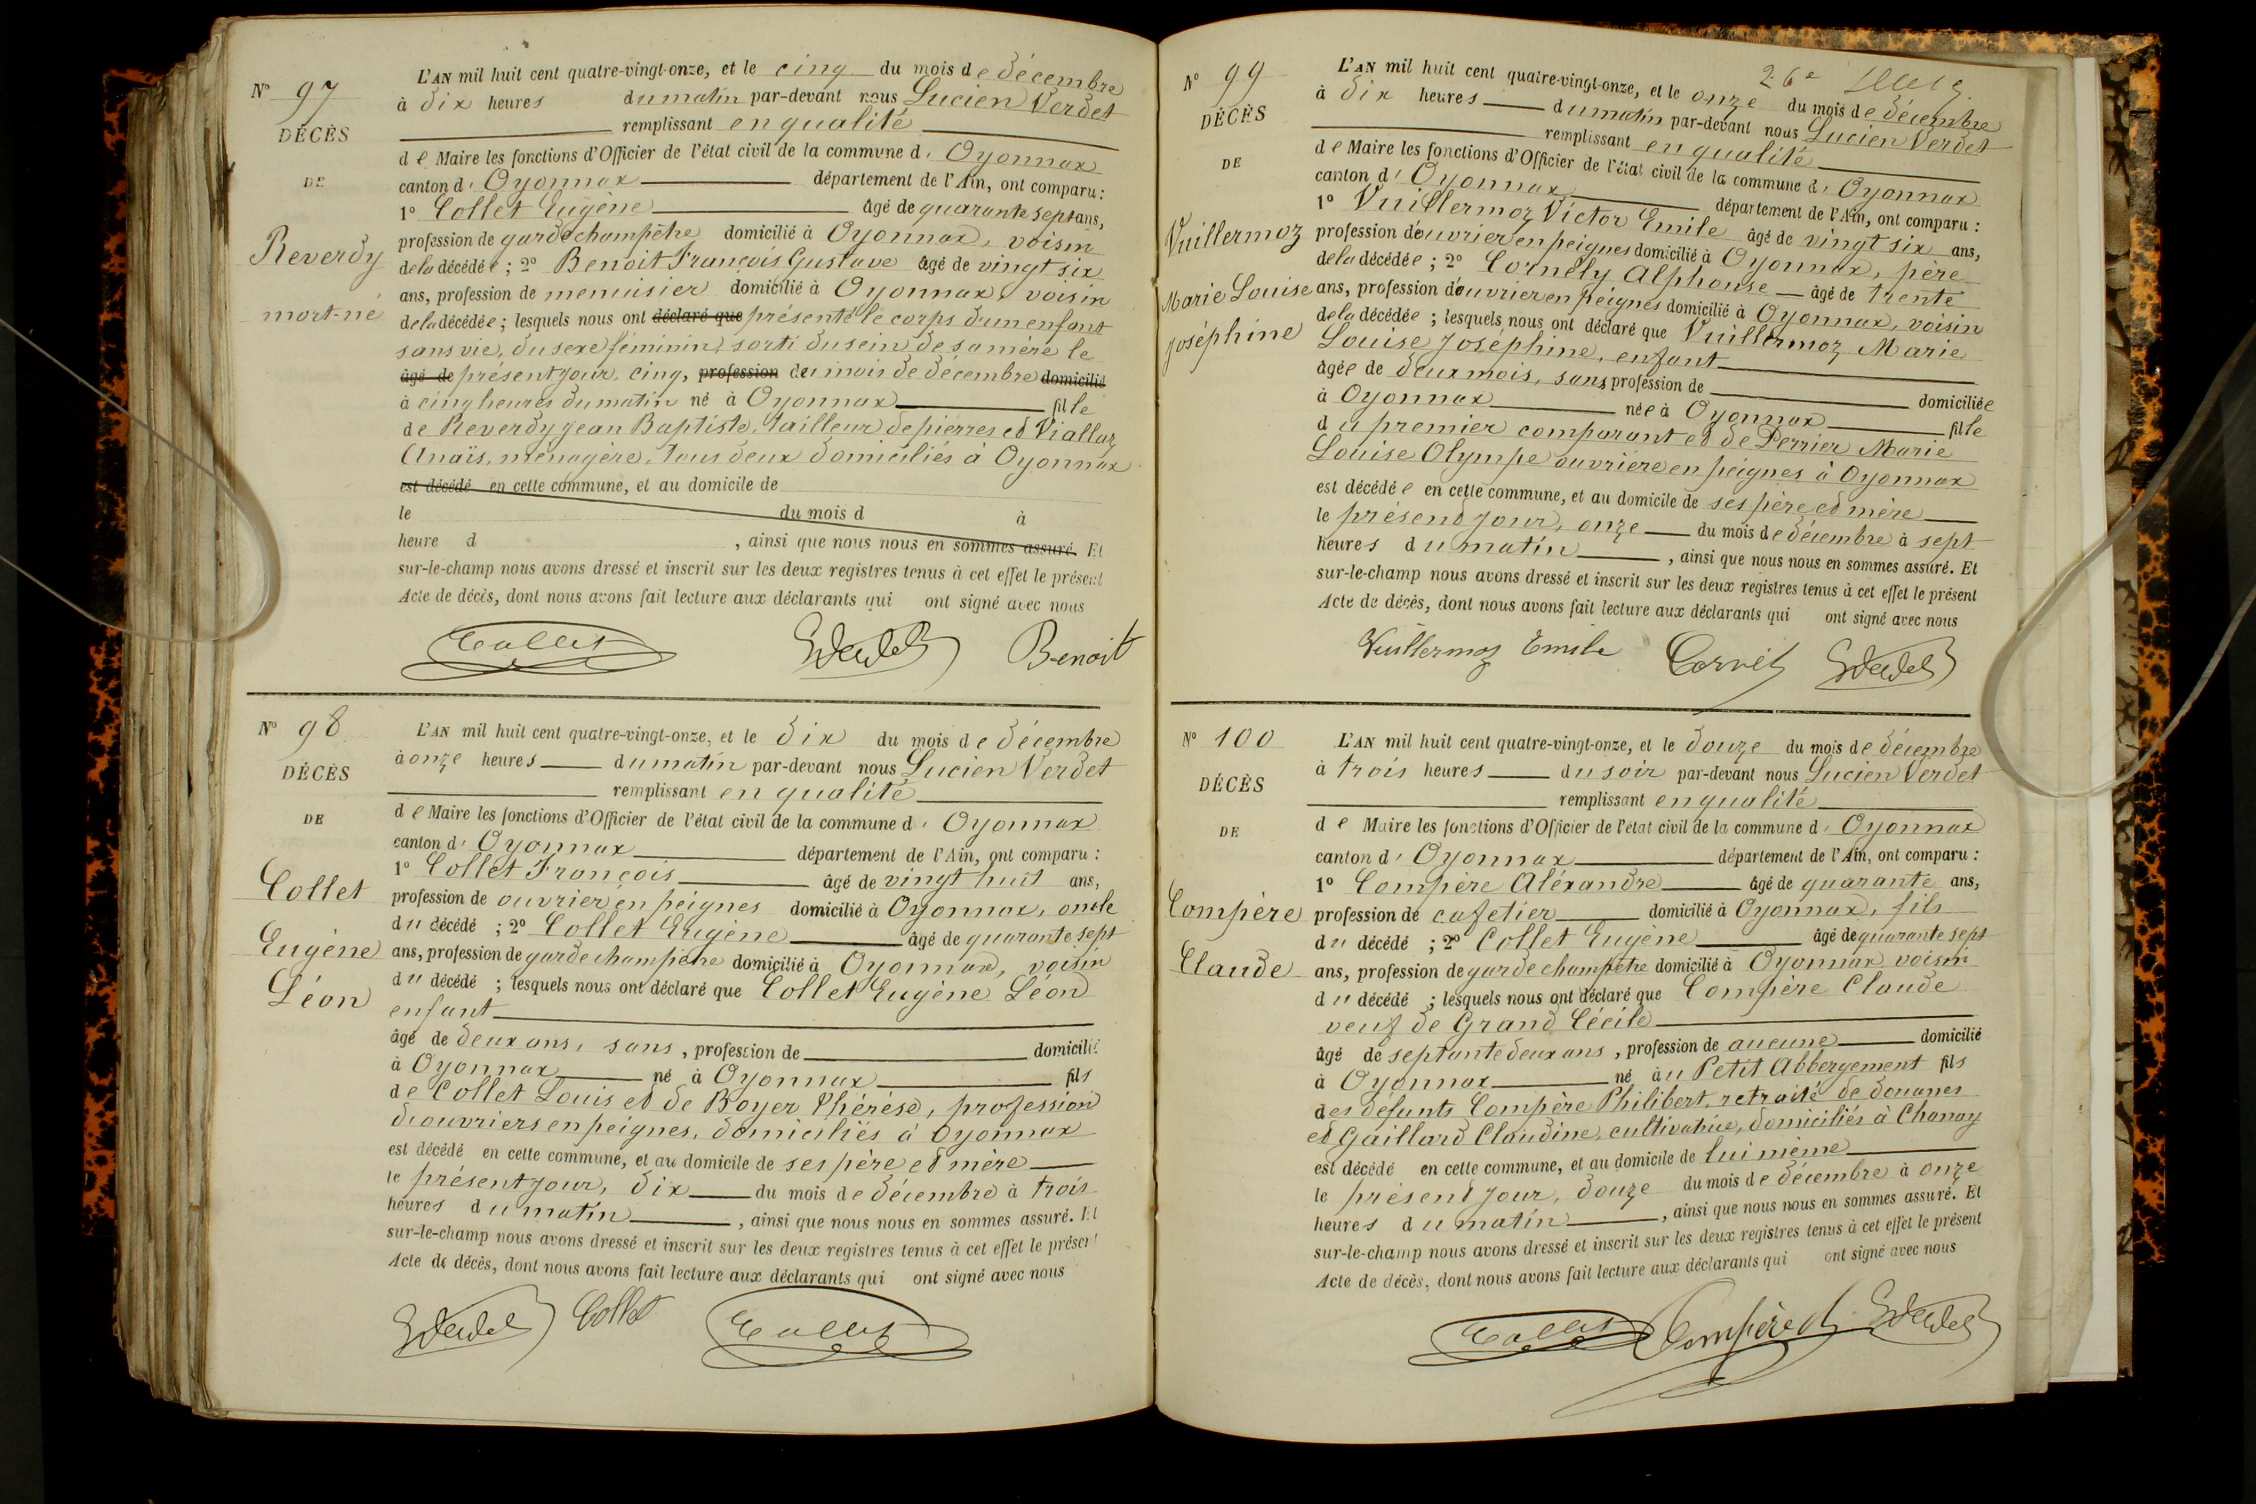 N° 97
DÉCÈS
DE
Reverdy
mort-né
L'AN mil huit cent quatre-vingt-onze, et le cinq du mois de décembre
à dix heures du matin par-devant nous Lucien Verdet
remplissant en qualité
de Maire les fonctions d'Officier de l'état civil de la commune d' Oyonnax
canton d' Oyonnax département de l'Ain, ont comparu :
1° Collet Eugène âgé de quarante sept ans,
profession de garde champêtre domicilié à Oyonnax, voisin
de la décédée ; 2° Benoit François Gustave âgé de vingt six
ans, profession de menuisier domicilié à Oyonnax, voisin
de la décédée ; lesquels nous ont déclaré que présenté le corps d'un enfant
sans vie, du sexe féminin, sorti du sein de sa mère le
âgé de présent jour, cinq, profession du mois de décembre domicilié
à cinq heures du matin né à Oyonnax fille
de Reverdy Jean Baptiste, tailleur de pierres et Viallaz
Anaïs, ménagère, tous deux domiciliés à Oyonnax
est décédé en cette commune, et au domicile de
le du mois d à
heure d , ainsi que nous nous en sommes assuré. Et
sur-le-champ nous avons dressé et inscrit sur les deux registres tenus à cet effet le présent
Acte de décès, dont nous avons fait lecture aux déclarants qui ont signé avec nous
Collet Verdet Benoit
N° 98
DÉCÈS
DE
Collet
Eugène
Léon
L'AN mil huit cent quatre-vingt-onze, et le dix du mois de décembre
à onze heures du matin par-devant nous Lucien Verdet
remplissant en qualité
de Maire les fonctions d'Officier de l'état civil de la commune d' Oyonnax
canton d' Oyonnax département de l'Ain, ont comparu :
1° Collet François âgé de vingt huit ans,
profession de ouvrier en peignes domicilié à Oyonnax, oncle
du décédé ; 2° Collet Eugène âgé de quarante sept
ans, profession de garde champêtre domicilié à Oyonnax, voisin
du décédé ; lesquels nous ont déclaré que Collet Eugène Léon
enfant
âgé de deux ans, sans, profession de domicilié
à Oyonnax né à Oyonnax fils
de Collet Louis et de Boyer Thérèse, profession
d'ouvriers en peignes, domiciliés à Oyonnax
est décédé en cette commune, et au domicile de ses père et mère
le présent jour, dix du mois de décembre à trois
heures du matin , ainsi que nous nous en sommes assuré. Et
sur-le-champ nous avons dressé et inscrit sur les deux registres tenus à cet effet le présent
Acte de décès, dont nous avons fait lecture aux déclarants qui ont signé avec nous
Verdet Collet Collet
2 6e
N° 99
DÉCÈS
DE
Vuillermoz
Marie Louise
Joséphine
L'AN mil huit cent quatre-vingt-onze, et le onze du mois de décembre
à dix heures du matin par-devant nous Lucien Verdet
remplissant en qualité
de Maire les fonctions d'Officier de l'état civil de la commune d' Oyonnax
canton d' Oyonnax département de l'Ain, ont comparu :
1° Vuillermoz Victor Emile âgé de vingt six ans,
profession d'ouvrier en peignes domicilié à Oyonnax, père
de la décédée ; 2° Cornély Alphonse âgé de trente
ans, profession d'ouvrier en peignes domicilié à Oyonnax, voisin
de la décédée ; lesquels nous ont déclaré que Vuillermoz Marie
Louise Joséphine, enfant
âgée de deux mois, sans profession de domiciliée
à Oyonnax née à Oyonnax fille
du premier comparant et de Perrier Marie
Louise Olympe ouvrière en peignes à Oyonnax
est décédée en cette commune, et au domicile de ses père et mère
le présent jour, onze du mois de décembre à sept
heures du matin , ainsi que nous nous en sommes assuré. Et
sur-le-champ nous avons dressé et inscrit sur les deux registres tenus à cet effet le présent
Acte de décès, dont nous avons fait lecture aux déclarants qui ont signé avec nous
Vuillermoz Emile Verdet
N° 100
DÉCÈS
DE
Compère
Claude
L'AN mil huit cent quatre-vingt-onze, et le douze du mois de décembre
à trois heures du soir par-devant nous Lucien Verdet
remplissant en qualité
de Maire les fonctions d'Officier de l'état civil de la commune d' Oyonnax
canton d' Oyonnax département de l'Ain, ont comparu :
1° Compère Aléxandre âgé de quarante ans,
profession de cafetier domicilié à Oyonnax, fils
du décédé ; 2° Collet Eugène âgé de quarante sept
ans, profession de garde champêtre domicilié à Oyonnax voisin
du décédé ; lesquels nous ont déclaré que Compère Claude
veuf de Grand Cécile
âgé de septante deux ans, profession de aucune domicilié
à Oyonnax né au Petit Abbergement fils
des défunts Compère Philibert, retraité de douanes
et Gaillard Claudine, cultivatrice, domiciliés à Chanay
est décédé en cette commune, et au domicile de lui même
le présent jour, douze du mois de décembre à onze
heures du matin , ainsi que nous nous en sommes assuré. Et
sur-le-champ nous avons dressé et inscrit sur les deux registres tenus à cet effet le présent
Acte de décès, dont nous avons fait lecture aux déclarants qui ont signé avec nous
Collet Compère Verdet